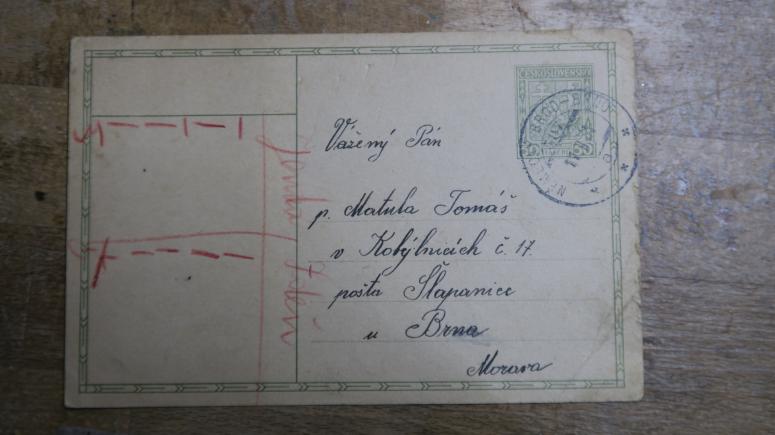 ČESKOSLOVENSK
Vážený Pán
p. Matula Tomáš
v Kobylnicích č. 17.
pošta Šlapanice
u Brna
Morava